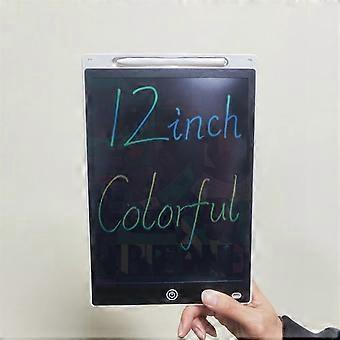 12 inch
Colorful